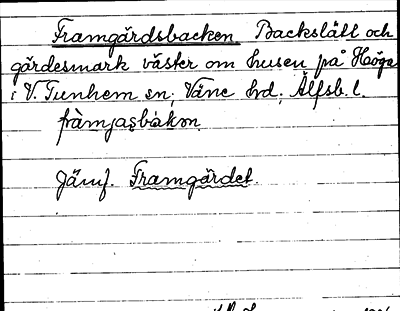 Framgärdsbacken Backslätt och
gärdesmark väster om husen på Höga
i V. Tunhem sn, Väne hd, Älfsb. l.
Jämf. Framgärdet.